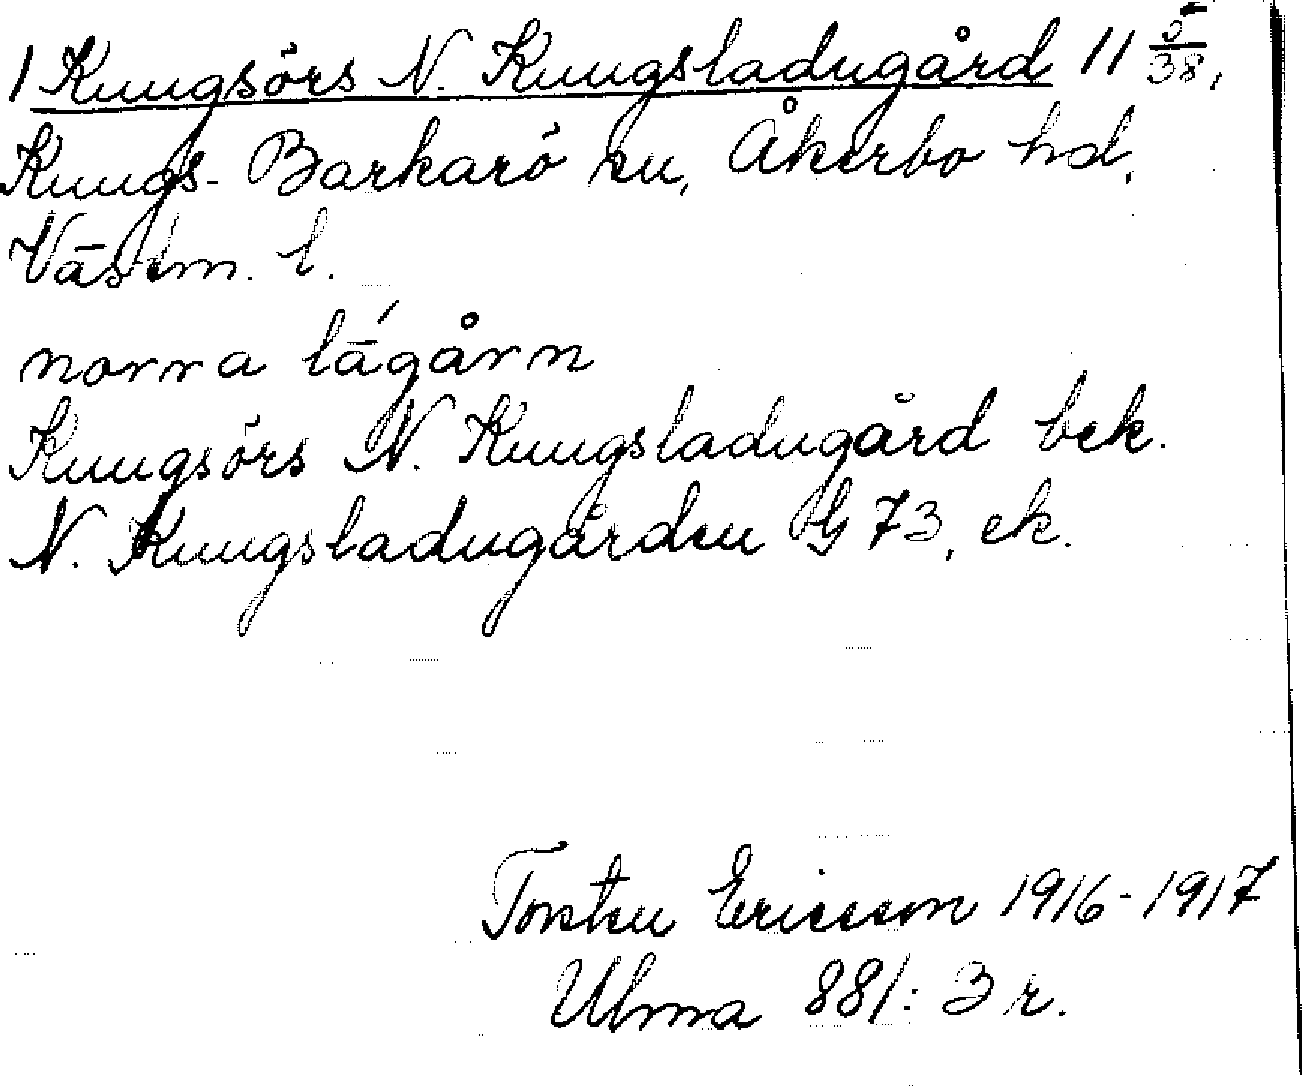 1 Kungsörs N. Kungsladugård 11 5/38,
Kungs-Barkarö sn, Åkerbo hd,
Västm. l.
norra lā́gårn
Kungsörs N. Kungsladugård bek.
N. Kungsladugården G 73, ek.
Torsten Ericsson 1916-1917
Ulma 881:3 r.